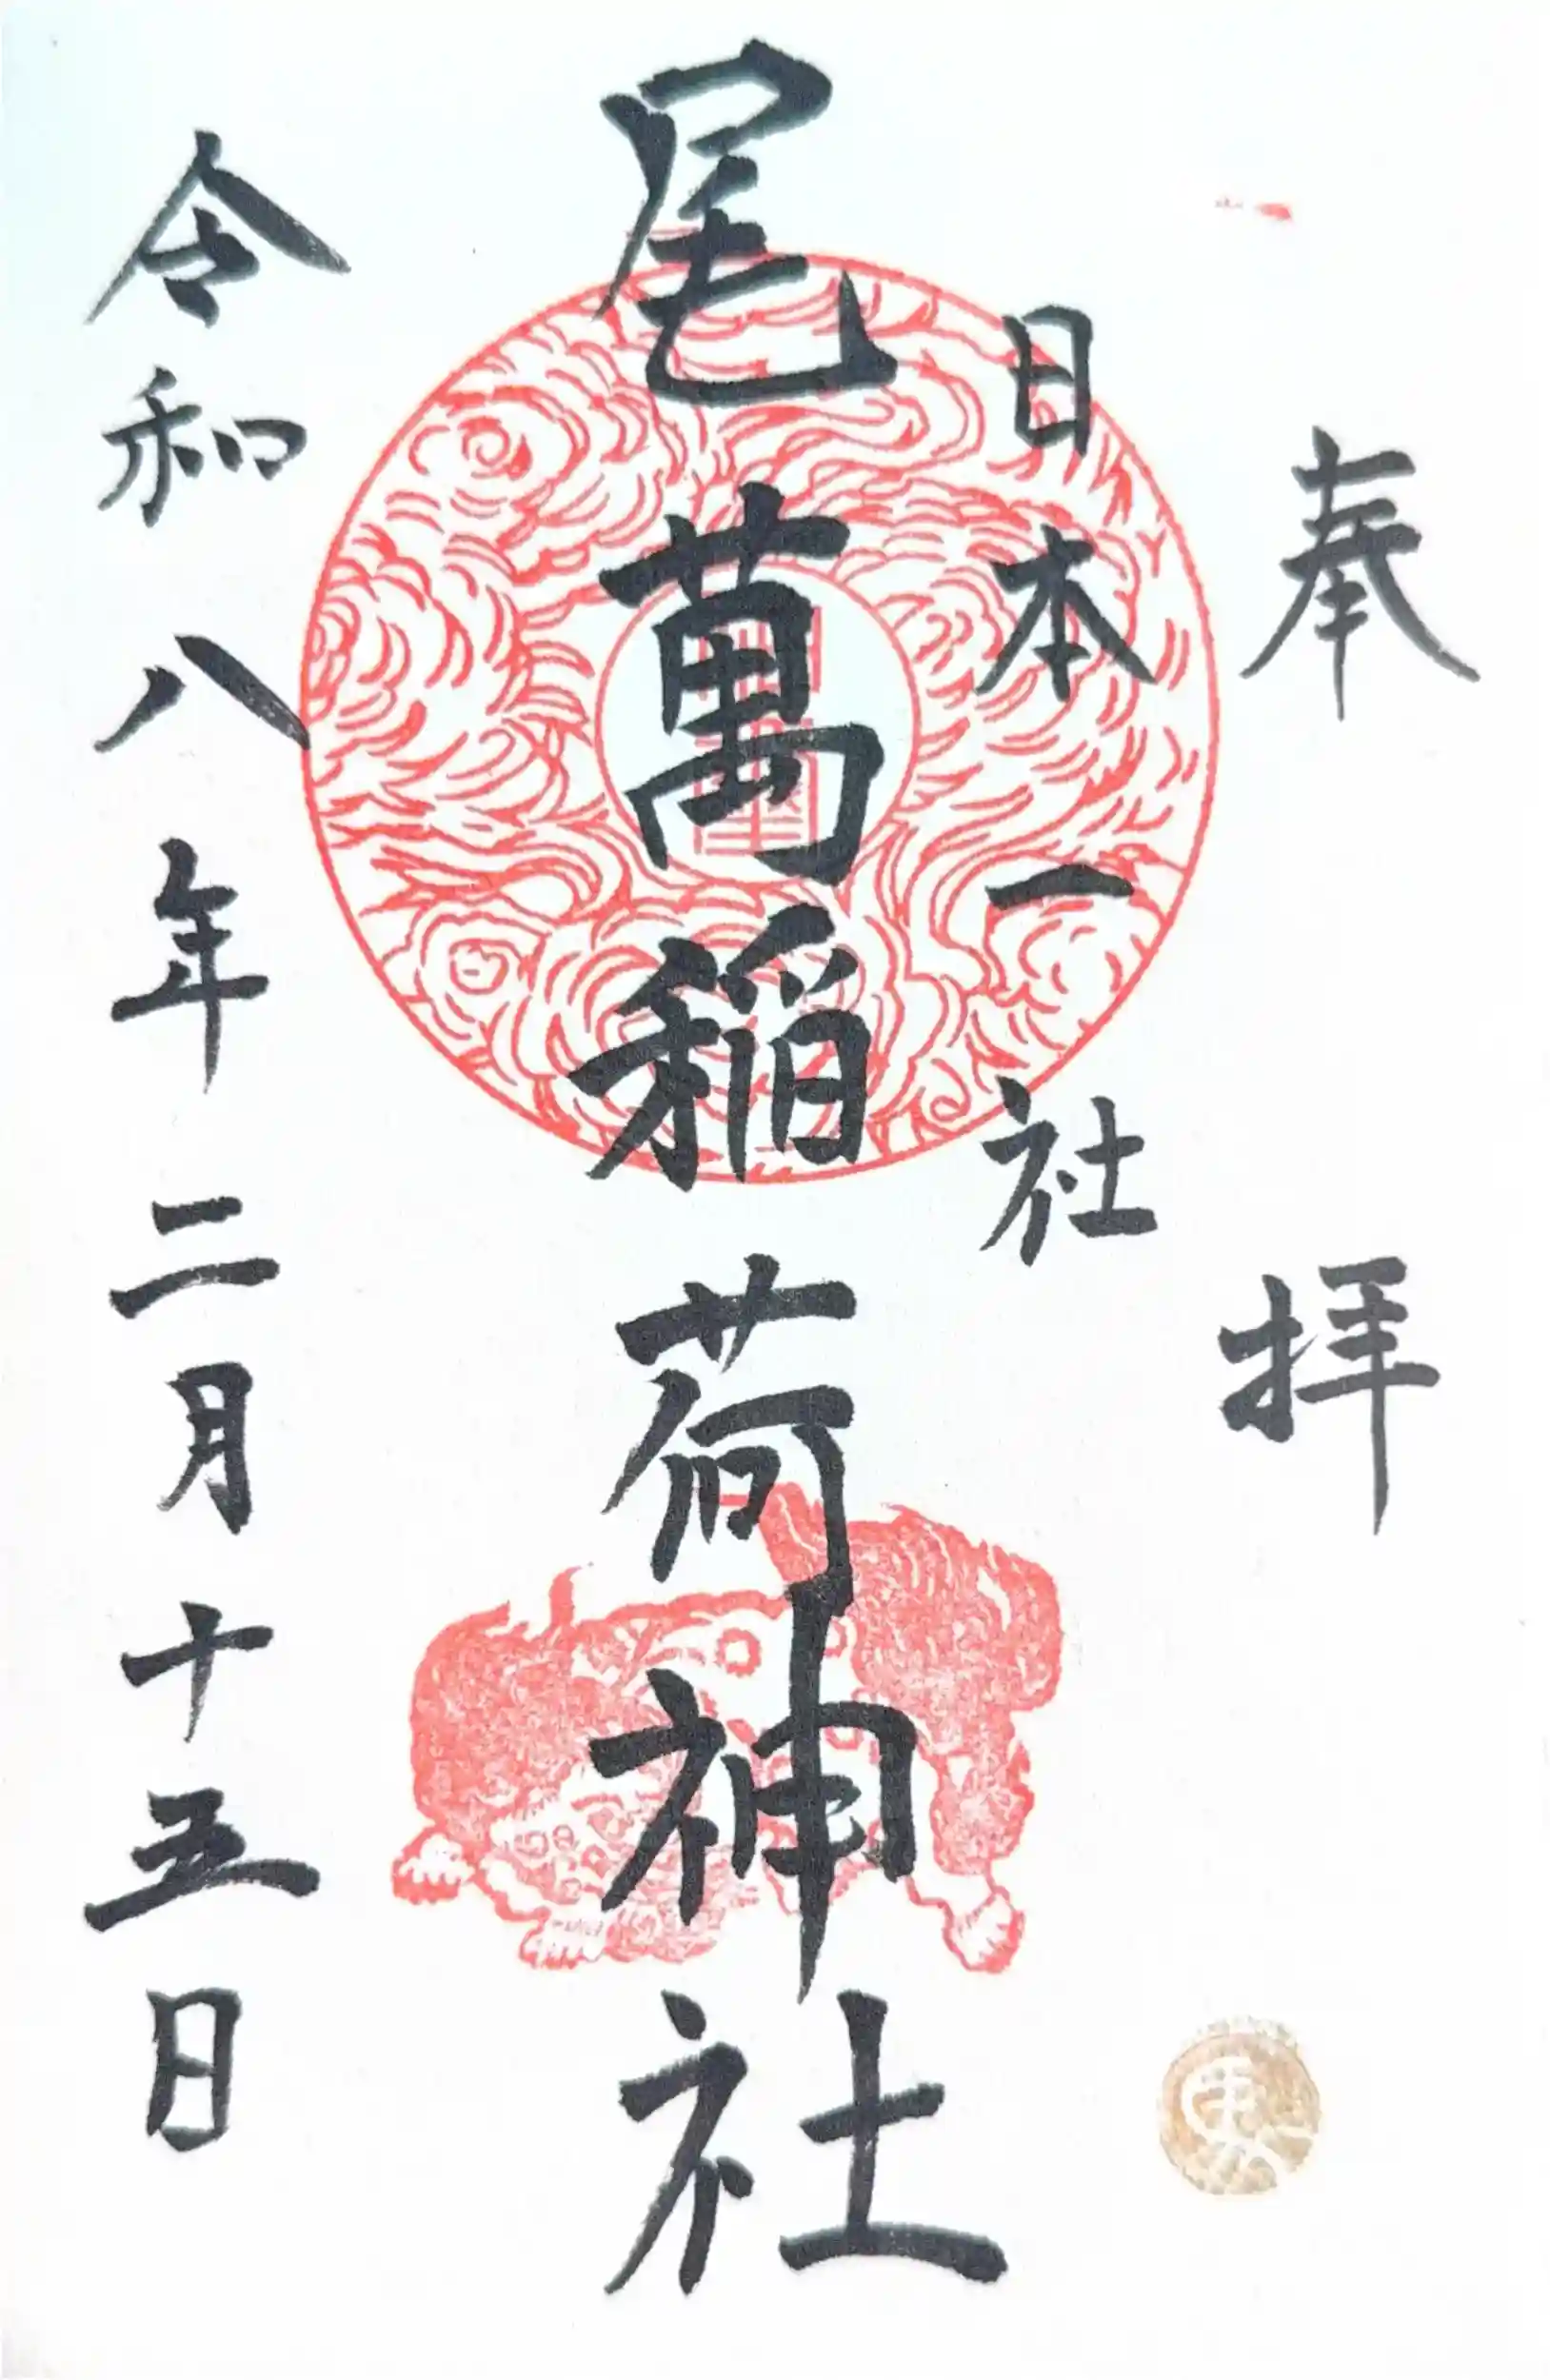 奉拝
日本一社
尾萬稲荷神社
令和八年二月十五日